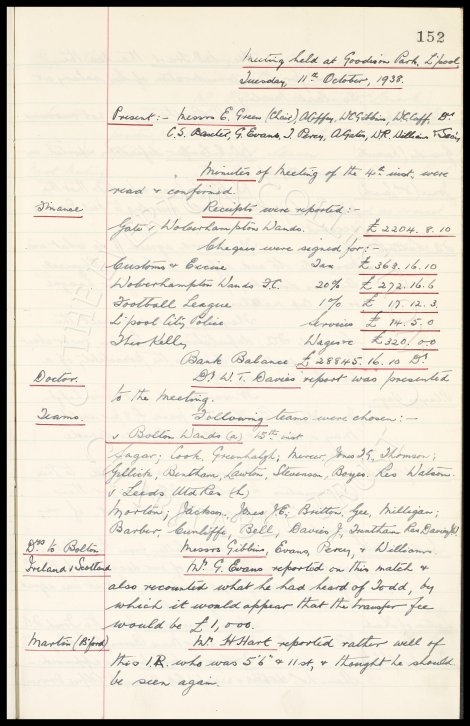 152
Meeting held at Goodison Park, L'pool
Tuesday 11th October, 1938.
Present:- Messrs E. Green (Chair), A Coffey, W.C. Gibbins, W.C. Cuff, Dr
C.S. Baxter, G. Evans, J. Percy, A. Gates, W.R. Williams & Secy
Minutes of Meeting of the 4th inst. were
read & confirmed.
Finance Receipts were reported:-
Gate v Wolverhampton Wands. £ 2204. 8. 10
Cheques were signed for:-
Customs & Excise Tax £ 368. 16. 10
Wolverhampton Wands F.C. 20% £ 272. 16. 6
Football League 1% £ 17. 12. 3
L'pool City Police Services £ 74. 5. 0
Theo Kelly Wages £ 320. 0. 0
Bank Balance £ 28845. 16. 10 Dr
Doctor. Dr W. T. Davies report was presented
to the meeting.
Teams. Following teams were chosen:-
v Bolton Wands (a) 15th inst
Sagar; Cook, Greenhalgh; Mercer Jones T.G. Thomson;
Gillick, Bentham, Lawton, Stevenson, Boyes. Res Watson.
v Leeds Utd Res (h)
Morton; Jackson, Jones J.E; Britton, Gee, Milligan;
Barber, Cunliffe, Bell, Davies J, Trentham Res. Davies
Drs to Bolton Messrs Gibbins, Evans, Percy, & Williams.
Ireland v Scotland Mr G. Evans reported on this match &
also recounted what he had heard of Todd, by
which it would appear that the transfer fee
would be £1,000.
Marton (B'ford) Mr H Hart reported rather well of
this I.R. who was 5'6" & 11 st, & thought he should
be seen again.